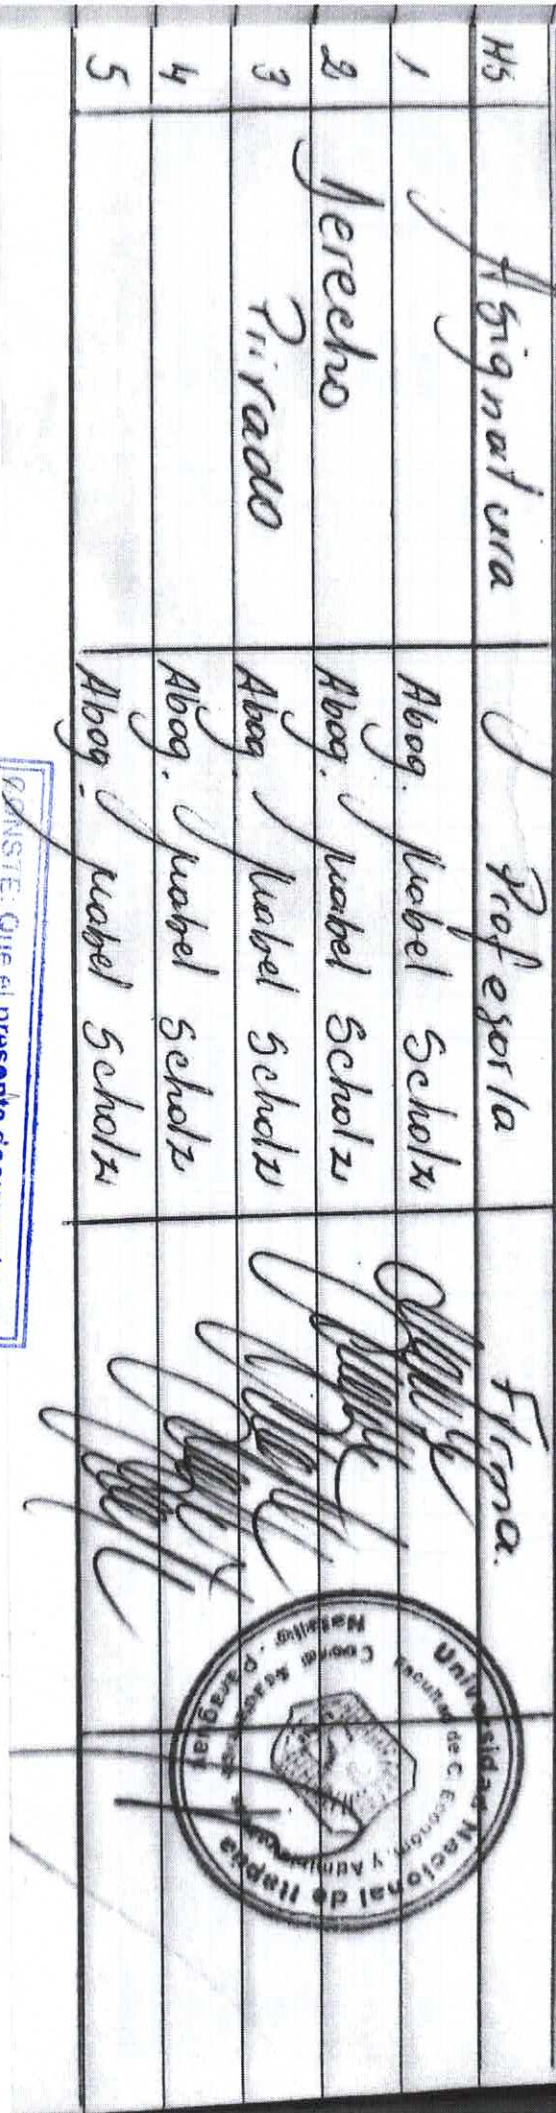 Hs Asignatura Profesor/a Firma.
1 Abog. Mabel Scholz
2 Derecho Abog. Mabel Scholz
3 Privado Abog. Mabel Scholz
4 Abog. Mabel Scholz
5 Abog. Mabel Scholz
Universidad Nacional de Itapúa
de C. Econom. y Administ
Coord
Natalio - Paraguay
CONSTE: Que el presente